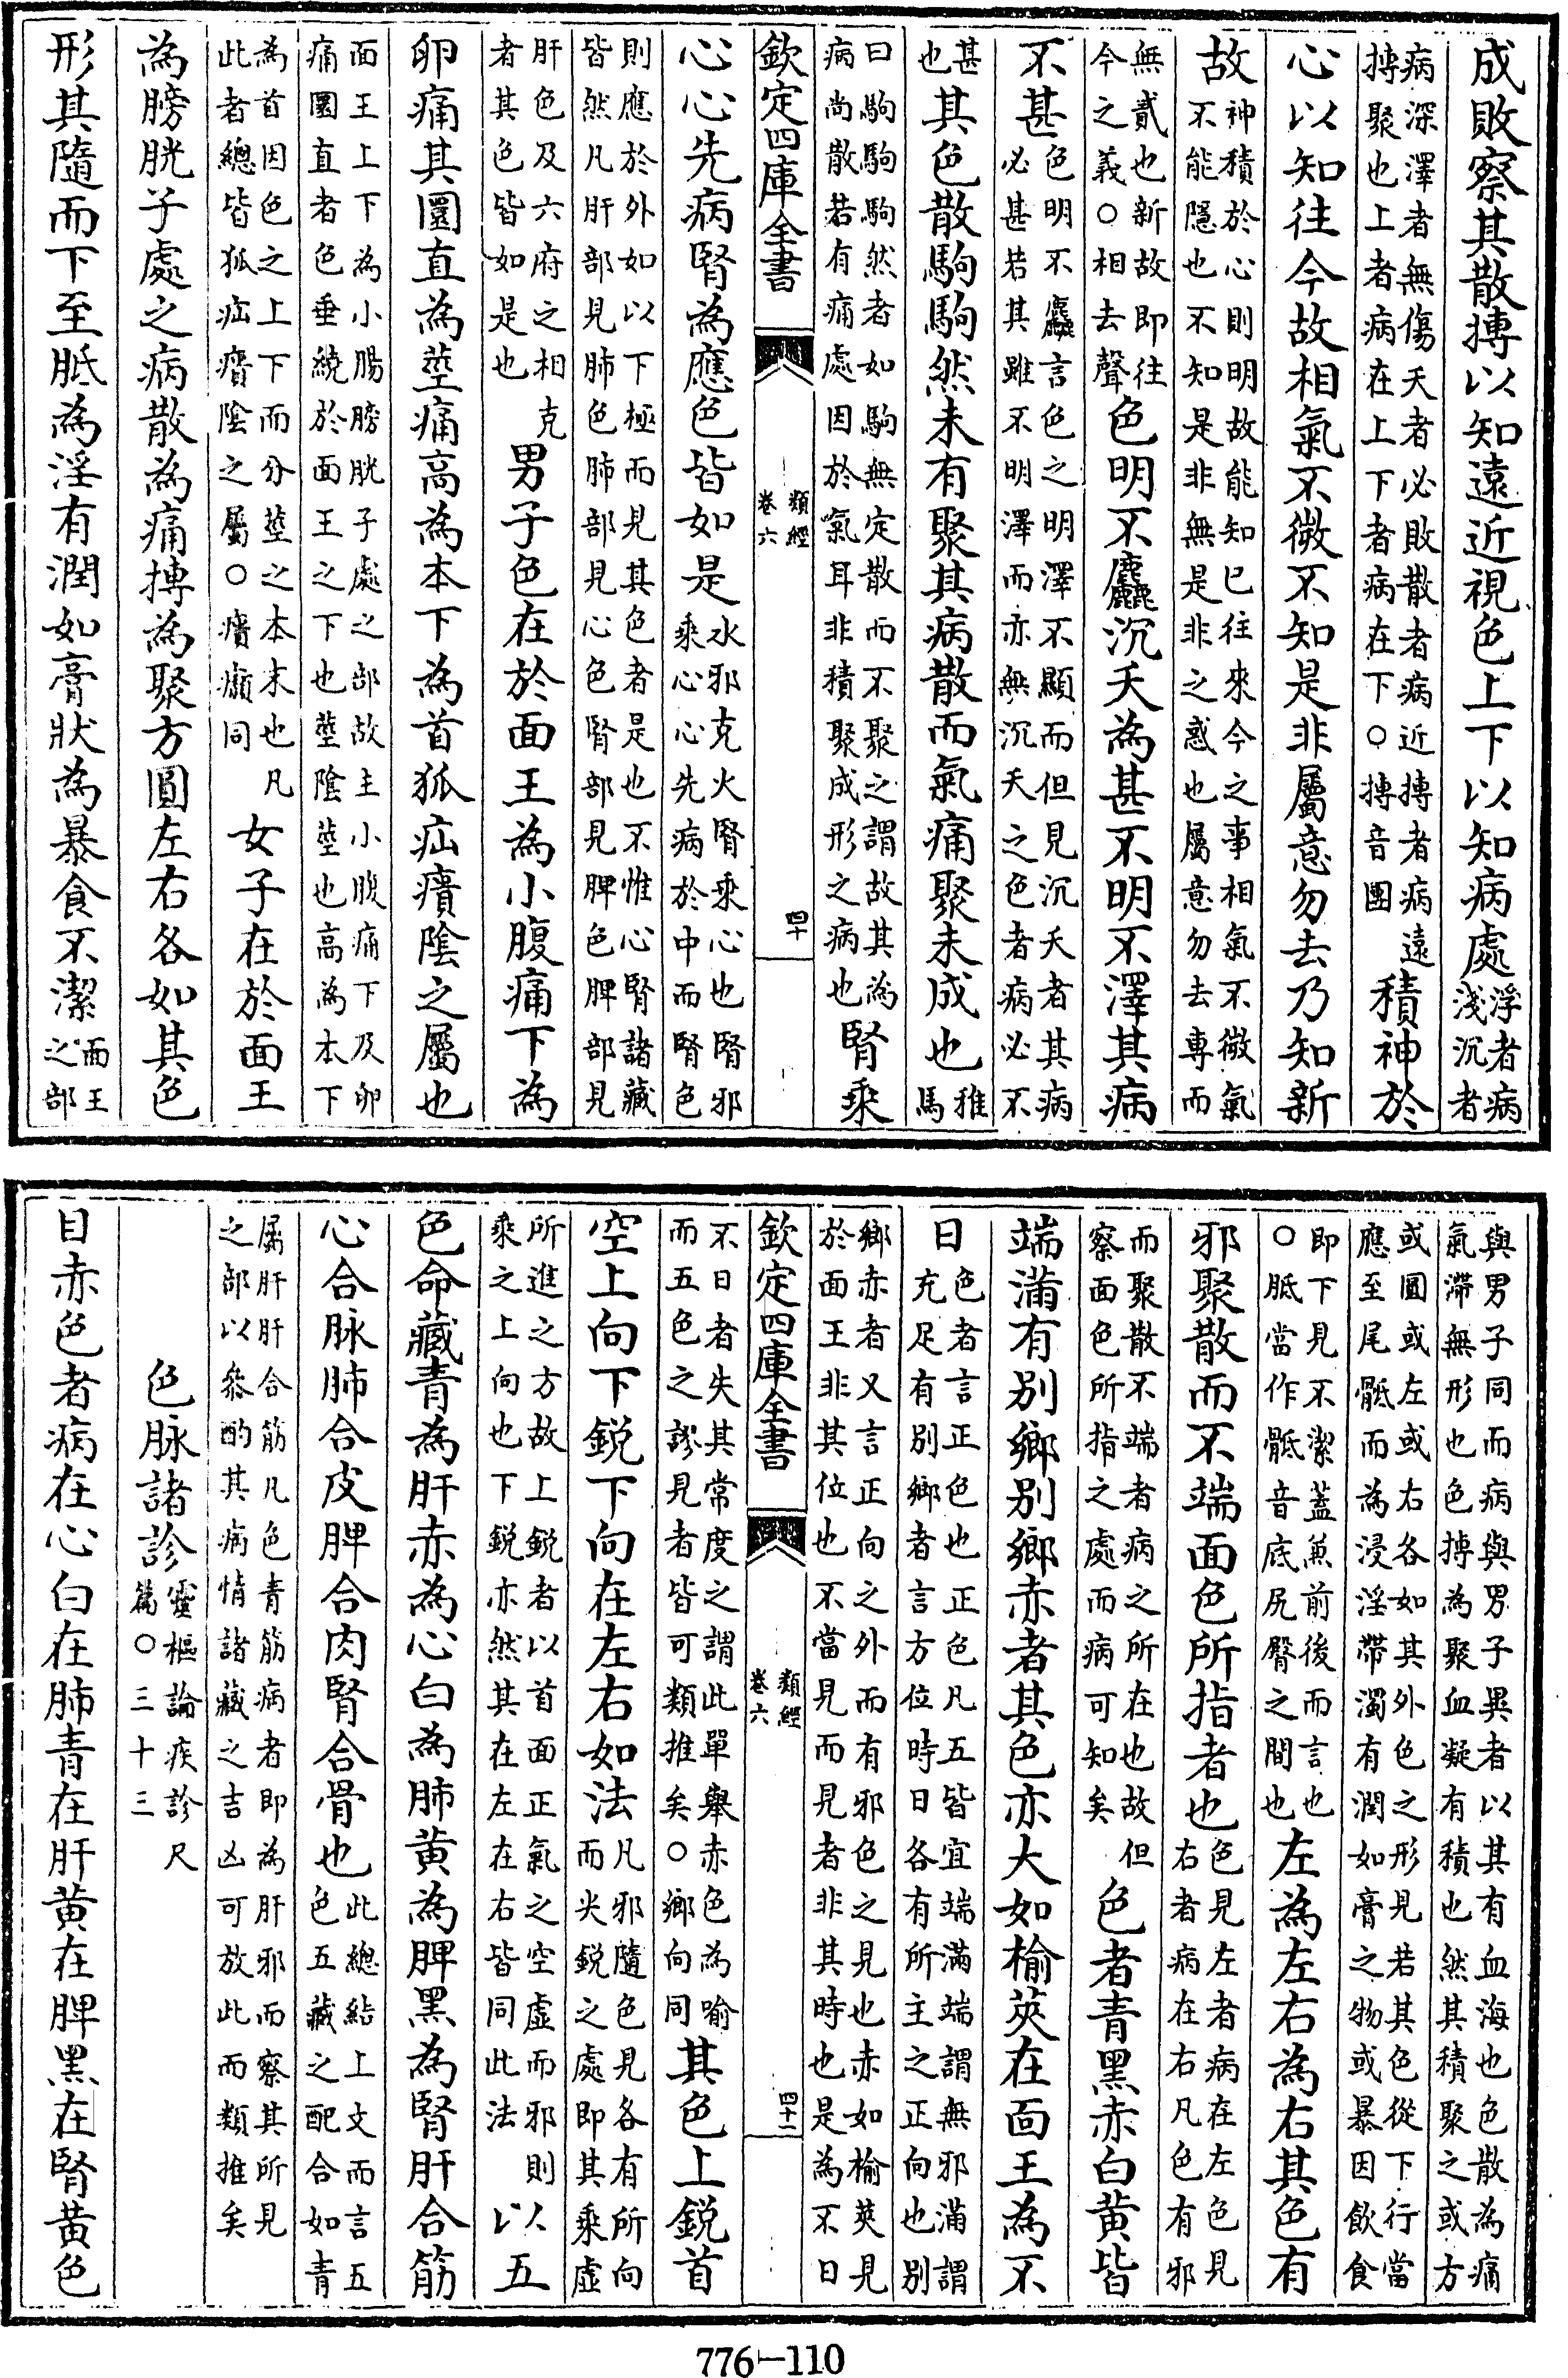 成敗察其散摶以知遠近視色上下以知病處浮者病淺沉者
病深澤者無傷夭者必敗散者病近摶者病遠摶聚也上者病在上下者病在下○摶音團積神於
心以知往今故相氣不微不知是非屬意勿去乃知新
故神積於心則明故能知已往來今之事相氣不微氣不能隱也不知是非無是非之惑也屬意勿去專而
無貳也新故即往今之義○相去聲色明不麤沉夭為甚不明不澤其病
不甚色明不麤言色之明澤不顯而但見沉夭者其病必甚若其雖不明澤而亦無沉夭之色者病必不
甚也其色散駒駒然未有聚其病散而氣痛聚未成也雅馬
曰駒駒駒然者如駒無定散而不聚之謂故其為病尚散若有痛處因於氣耳非積聚成形之病也腎乘
欽定四庫全書 類經 卷六 四十
心心先病腎為應色皆如是水邪克火腎乘心也腎邪乘心心先病於中而腎色
則應於外如以下極而見其色者是也不惟心腎諸藏皆然凡肝部見肺色肺部見心色腎部見脾色脾部見
肝色及六府之相克者其色皆如是也男子色在於面王為小腹痛下為
卵痛其圜直為莖痛高為本下為首狐疝㿉陰之屬也
面王上下為小腸膀胱子處之部故主小腹痛下及卵痛圜直者色垂繞於面王之下也莖陰莖也高為本下
為首因色之上下而分莖之本末也凡此者總皆狐疝㿉陰之屬○㿉癩同女子在於面王
為膀胱子處之病散為痛摶為聚方圓左右各如其色
形其隨而下至胝為淫有潤如膏狀為暴食不潔面王之部
與男子同而病與男子異者以其有血海也色散為痛氣滯無形也色摶為聚血凝有積也然其積聚之或方
或圓或左或右各如其外色之形見若其色從下行當應至尾骶而為浸淫帶濁有潤如膏之物或暴因飲食
即下見不潔蓋兼前後而言也○胝當作骶骶音底尻臀之間也左為左右為右其色有
邪聚散而不端面色所指者也色見左者病在左色見右者病在右凡色有邪
而聚散不端者病之所在也故但察面色所指之處而病可知矣色者青黑赤白黃皆
端滿有别鄉别鄉赤者其色亦大如榆莢在面王為不
日色者言正色也正色凡五皆宜端滿端謂無邪滿謂充足有别鄉者言方位時日各有所主之正向也别
鄉赤者又言正向之外而有邪色之見也赤如榆莢見於面王非其位也不當見而見者非其時也是為不日
欽定四庫全書 類經 卷六 四十一
不日者失其常度之謂此單舉赤色為喻而五色之謬見者皆可類推矣○鄉向同其色上鋭首
空上向下鋭下向在左右如法凡邪隨色見各有所向而尖鋭之處即其乘虛
所進之方故上鋭者以首面正氣之空虛而邪則乘之上向也下鋭亦然其在左在右皆同此法以五
色命藏青為肝赤為心白為肺黃為脾黑為腎肝合筋
心合脉肺合皮脾合肉腎合骨也此總結上文而言五色五藏之配合如青
屬肝肝合筋凡色青筋病者即為肝邪而察其所見之部以參酌其病情諸藏之吉凶可放此而類推矣
色脉諸診靈樞論疾診尺篇○三十三
目赤色者病在心白在肺青在肝黃在脾黑在腎黃色
776-110